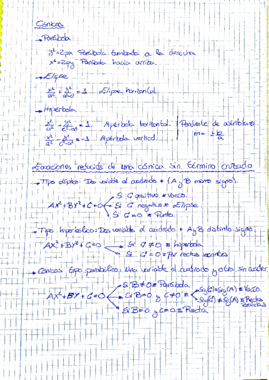 Cónicas
→ Parábola
y²=2px Parábola tumbada a la derecha
x²=2py Parábola hacia arriba.
→ Elipse
= 1 Elipse horizontal
→ Hipérbola
= 1 Hipérbola horizontal. Pendiente de asíntotas
= -1 Hipérbola vertical. m=
Ecuaciones reducidas de una cónica sin término cruzado
→ Tipo elíptico: Dos variable al cuadrado + (A y B mismo signo).
AX²+BY²+C=0 Si C positivo = Vacío.
Si C negativo = Elipse
Si C=0 = Punto.
→ Tipo hiperbólico: Dos variable al cuadrado + A y B distinto signo.
AX²+BY²+C=0 Si C≠0 = hipérbola
Si C=0 = Par rectas
→ Cónicas tipo parabólico: Una variable al cuadrado y otra sin
AX²+BY+C=0 Si B≠0 = Parábola.
Si B=0 y C≠0
Si B=0 y C=0 = Recta